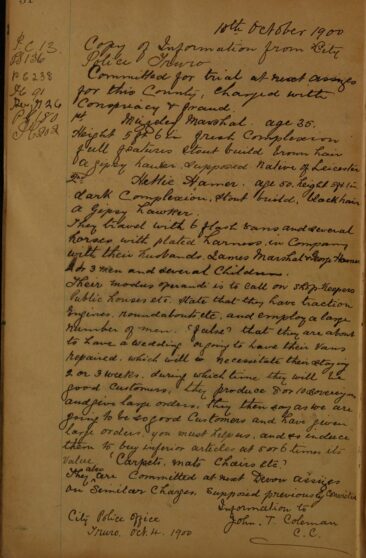 10th October 1900
Copy of Information from City
Police Truro
Committed for trial at next assizes
for this County, charged with
Conspiracy & fraud.
1st Marshal. age 35.
Height 5ft 6in fresh Complexion
full features stout build brown hair
a gipsy hawker. supposed native of Leicester
2nd Hettie Hamer. age 50, height 5ft
dark Complexion, stout build, black hair
a Gipsy Hawker.
They travel with 6 flash vans and several
horses with plated harness, in Company
with their husbands James Marshal & Hamer
& 3 men and several Children.
Their modus operandi is to call on Shop-keepers
Public houses etc. state that they have traction
Engines, roundabouts etc, and employ a large
number of men. "false" that they are about
to have a wedding or going to have their Vans
repaired. which will necessitate their staying
2 or 3 weeks, during which time they will be
good Customers, they produce sovereigns
and give large orders, they then say as we are
going to be so good Customers and have given
large orders, you must help us, and so induce
them to buy inferior articles at 5 or 6 times its
Value. "Carpets, mats Chairs etc"
They also are Committed at next Devon assizes
on Similar Charges. supposed previously Convicted
Information to
City Police Office John. T. Coleman
Truro, Oct. 4. 1900 C.C.
P.C 13.
PS 136
PC 238